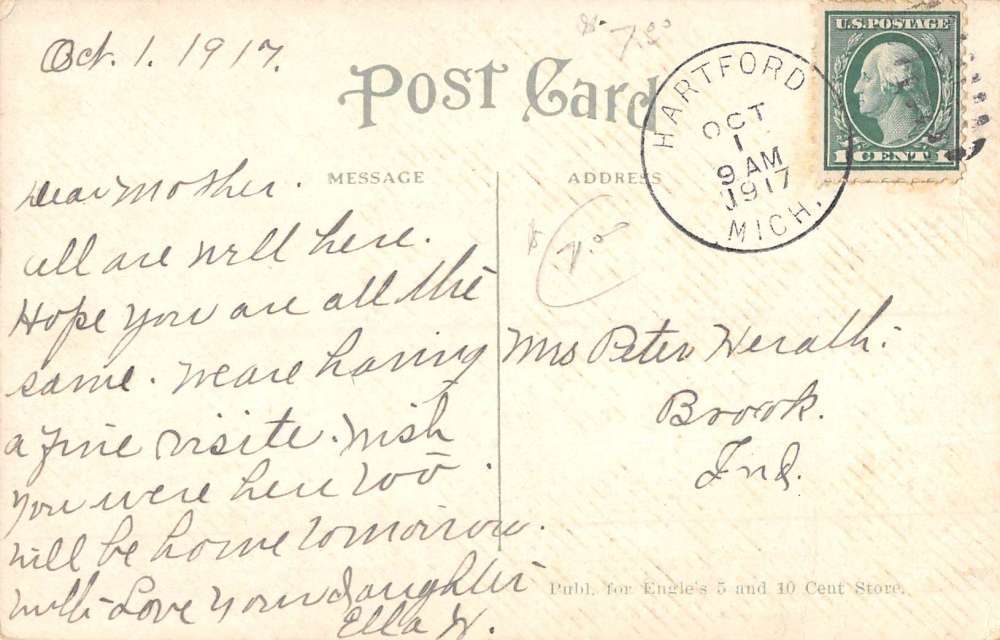 Oct. 1. 1917.
$7.50
Post Card
U.S. POSTAGE
1 CENT 1
HARTFORD
OCT
1
9 AM
1917
MICH.
MESSAGE
ADDRESS
Dear Mother.
all are well here.
Hope you are all the
same. We are having
a fine visite. Wish
you were here too.
will be home tomorrow.
with Love your daughter
Ella H.
$7.00
Mrs Peter Herath.
Brook.
Ind.
Publ. for Engle's 5 and 10 Cent Store.